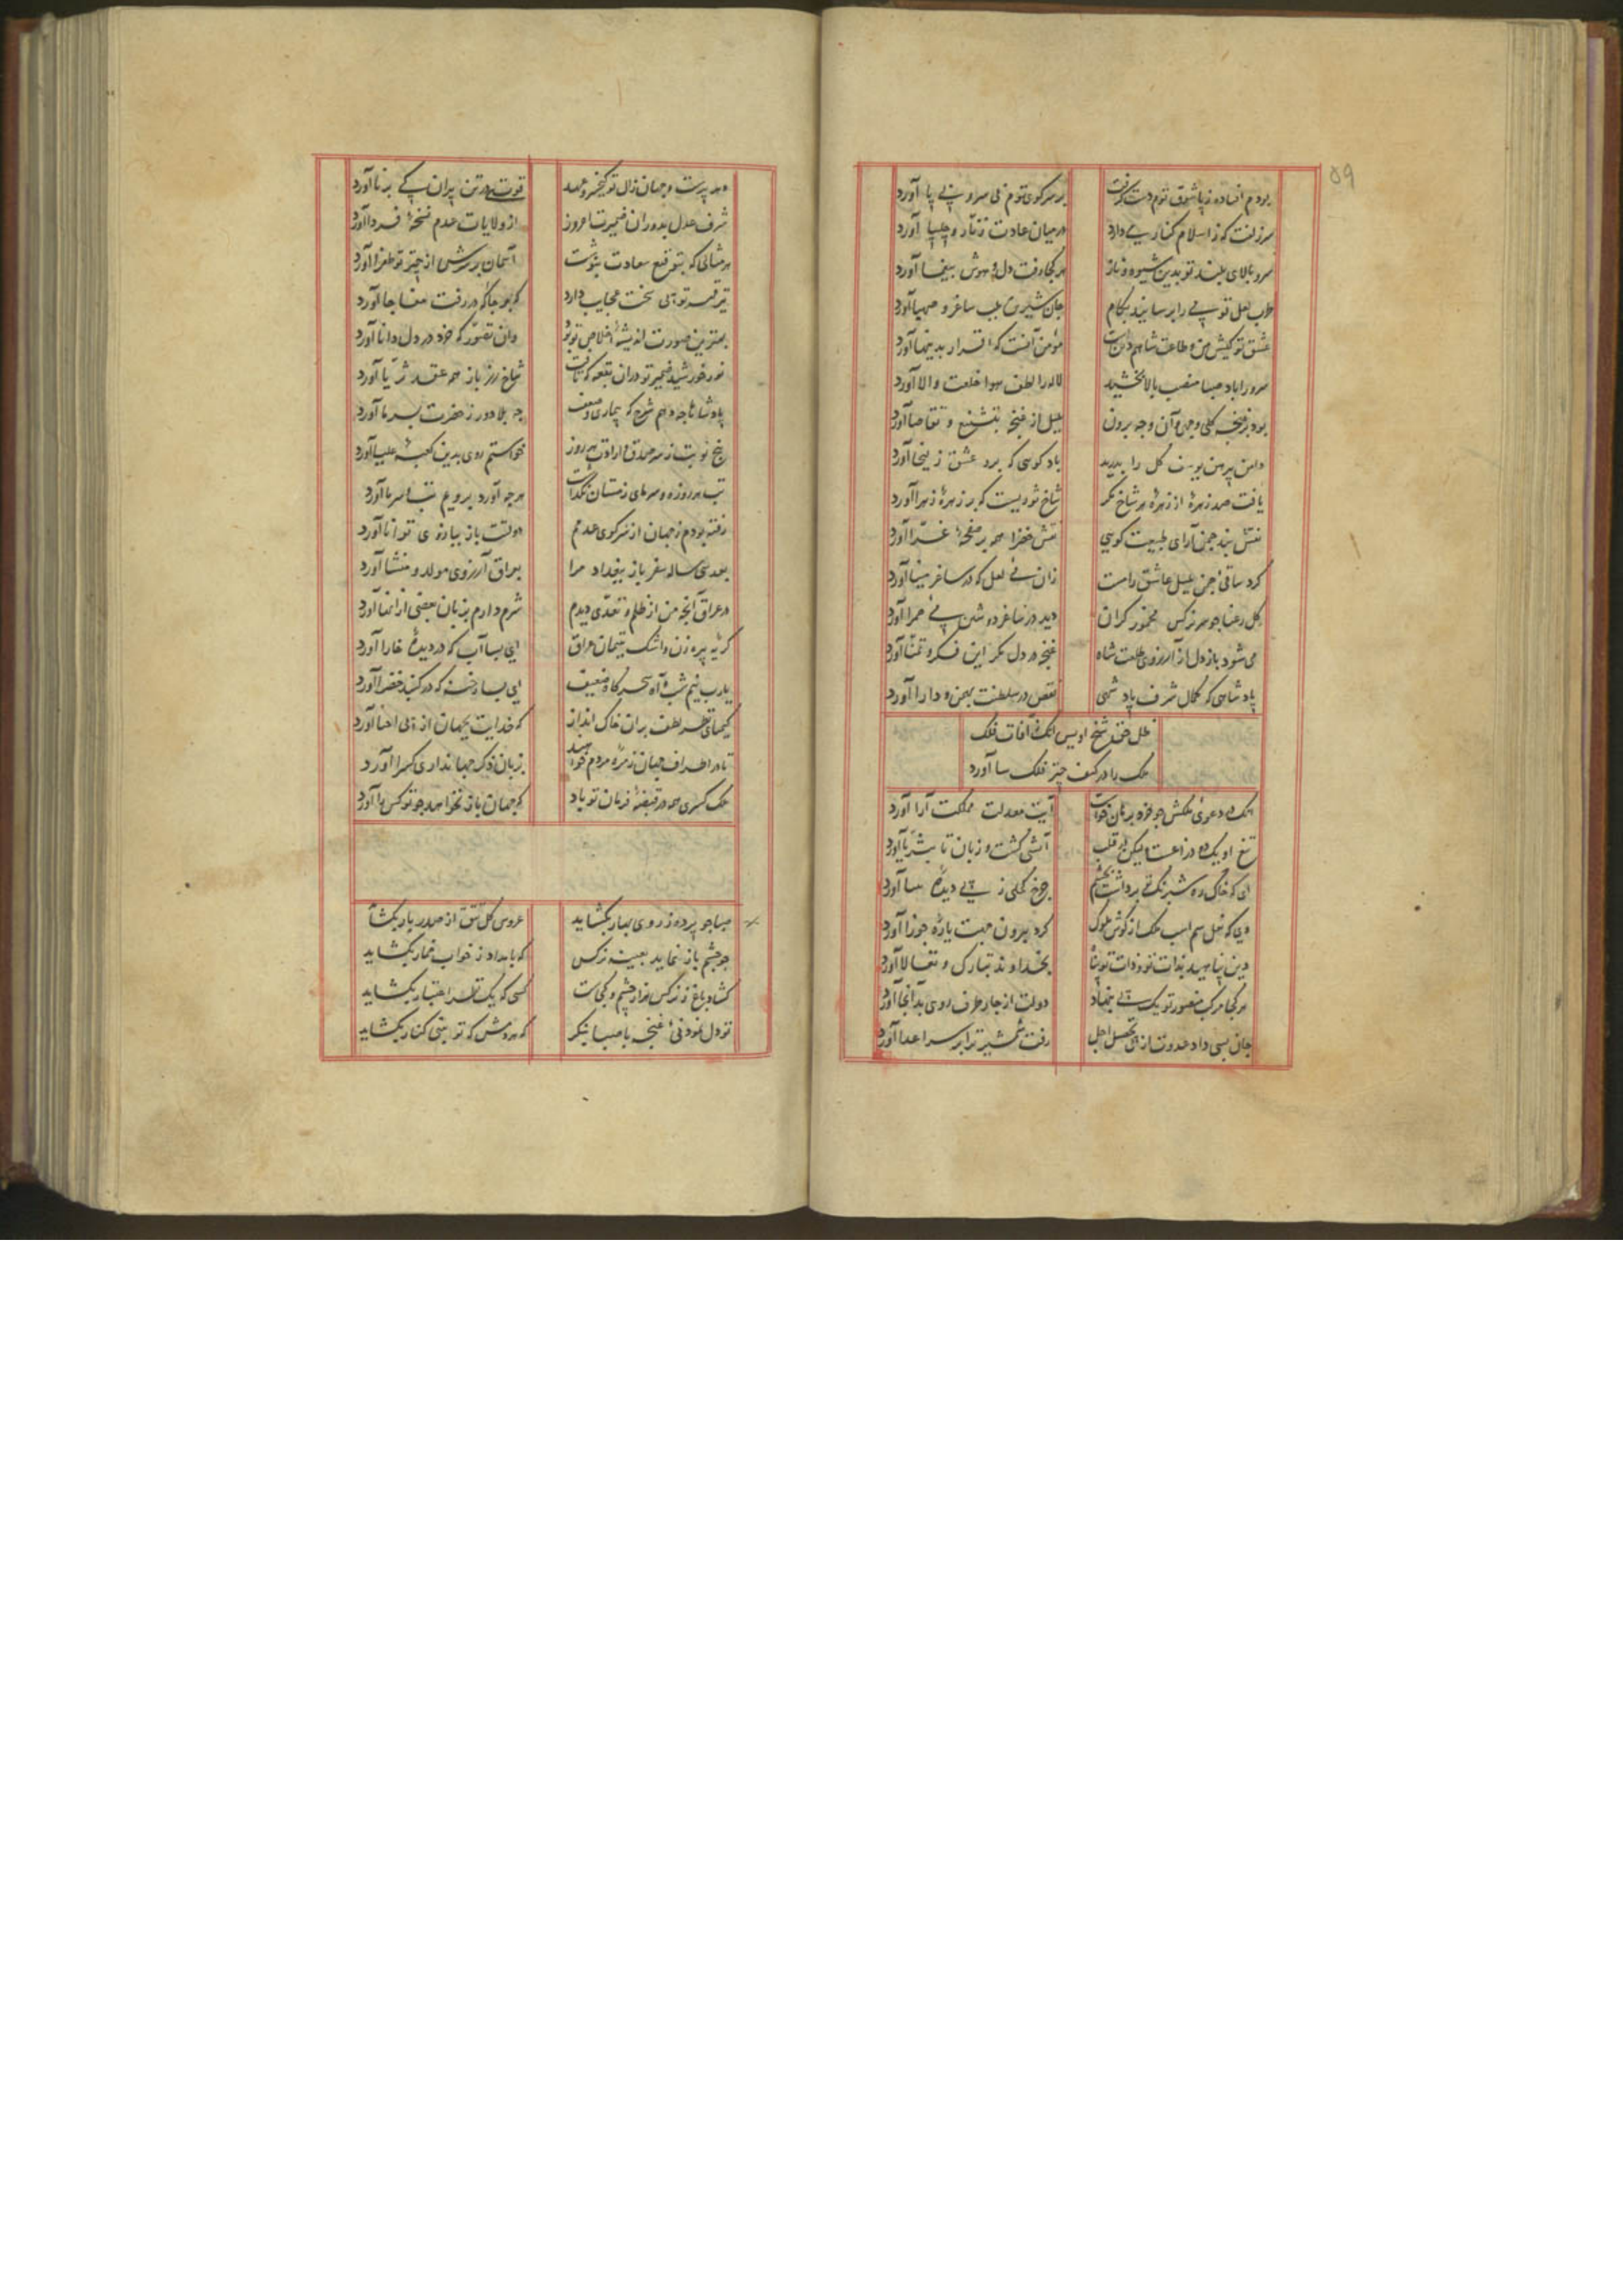 ۵۹
بودم افتاده ز پا شوق توم دست گرفت بر سر کوی توم بی سر و بی پا آورد
سر زلفت که ز اسلام کناری دارد در میان عادت زنار و چلیپا آورد
سرو بالای بلند تو بدین شیوه و ناز هر کجا رفت دل و هوش بیغما آورد
لب لعل تو بکام جان شیرین بلب ساغر و صهبا آورد
عشق تو کیش من و طاعت شاهم دینست مؤمن آنست که اقرار بدینها آورد
سرو را باد صبا منصب بالا بخشید لاله را لطف هوا خلعت والا آورد
بود بر غنچه کلی وجهی و آن وجه برون بلبل از غنچه بتشنیع و تقاضا آورد
دامن پیرهن یوسف گل را بدرید باد گویی که برد عشق زلیخا آورد
یافت صد زهره از زهره هر شاخ نگر شاخ ثوریست که بر زهره زهرا آورد
نقش بند چمن آرای طبیعت گویی نقش خضرا همه بر صفحه غبرا آورد
کرد ساقی چمن بلبل عاشق را مست زان می لعل که در ساغر مینا آورد
گل رعنا چو سر نرگس مخمور گران دید در ساغر دوشین می حمرا آورد
می شود باز دل از آرزوی طلعت شاه غنچه در دل مگر این فکر و تمنا آورد
پادشاهی که کمال شرف پادشهی نقص در سلطنت بهمن و دارا آورد
ظل حق شیخ اویس آنک آفات فلک
ملک را در کنف چتر فلک سا آورد
آنک در دعوی ملکش چو خرد برهان خواست آیت معدلت مملکت آرا آورد
تیغ او یک دو ذراعست لیکن آتشی گشت و زبان تا بثریا آورد
ای که خاک ره شبرنگ برداشت بچشم چرخ کحلی ز پی دیده بینا آورد
وی که نعل سم اسب ملک از گوش ملوک کرد بیرون جهت یاره جوزا آورد
دین پناهید بذات تو و ذات تو پناه بخداوند تبارک و تعالا آورد
هر کجا مرکب منصور تو یک پی بنهاد دولت از چار طرف روی بدانجا آورد
جان بسی داد عدوت از پی تحصیل اجل رفت شمشیر ترا بر سر اعدا آورد
مهد پرست و جهان زال تو کیخسرو عهد قوت در تن پیران پی برنا آورد
شرف عدل بدوران ضمیرت امروز از ولایات عدم نسخه فردا آورد
هر مثالی که بتوقیع سعادت بنوشت آسمان بر سرش از چتر تو طغرا آورد
تیر تو پی سخت عجایب دارد که بهر جا که در رفت مفاجا آورد
بهترین صورت اندیشه اخلاص تو بود وان تصور که خرد در دل دانا آورد
نور خورشید ضمیر تو در آن بقعه که تافت شاخ رز باز همه عقد ثریا آورد
پادشاها چه دهم شرح که بیماری و ضعف چه بلا دور ز حضرت بسر ما آورد
پنج نوبت ز سر صدق و ارادت هر روز خواستم روی بدین کعبه علیا آورد
تب هر روزه و سرمای زمستان نگذاشت هر چه آورد برویم تب و سرما آورد
رفته بودم ز جهان از سر کوی عدمم دولت باز ببازوی توانا آورد
بعد سی ساله سفر باز ببغداد مرا بعراق آرزوی مولد و منشا آورد
در عراق آنچه من از ظلم و تعدی دیدم شرم دارم بزبان بعضی از آنها آورد
گریه پیره زن و اشک یتیمان عراق ای بسا آب که در دیده خارا آورد
یارب نیم شب و آه سحرگاه ضعیف ای بسا رخنه که در گنبد خضرا آورد
کیمیای نظر لطف بران خاک انداز که خدایت بجهان از پی احیا آورد
تا در اطراف جهان زمره مردم خواهند بزبان ذکر جهانداری کسرا آورد
ملک کسری همه در قبضه فرمان تو باد که جهان باز نخواهد چو تو کسرا آورد
صبا چو پرده ز روی بهار بگشاید عروس گل تتق از صدر بار بگشاید
چو چشم باز نماید بعینه نرگس که بامداد ز خواب خمار بگشاید
گشاد باغ ز نرگس هزار چشم و کجاست کسی که یک نظر اعتبار بگشاید
تو دل نمودنی غنچه با صبا بنگر که هر دمش که تو بینی کنار بگشاید